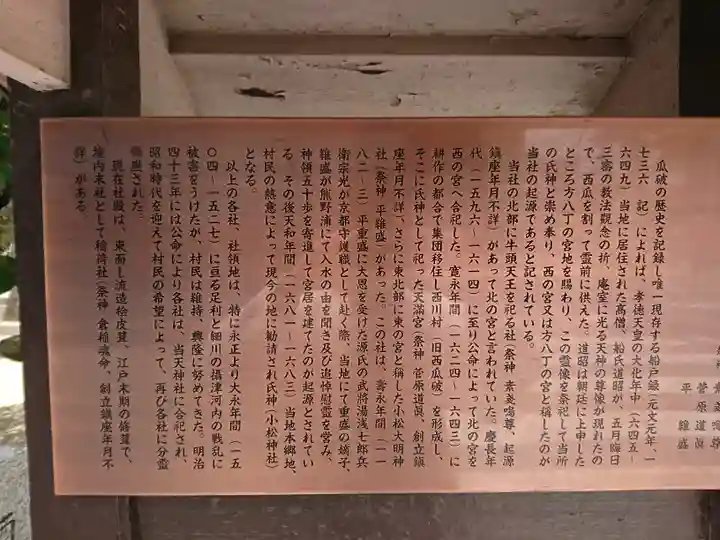 素戔嗚尊
菅原道眞
平維盛
瓜破の歴史を記録し唯一現存する船戸録(元文元年、一
七三六 記)によれば、孝徳天皇の大化年中(六四五~
六四九)当地に居住された高僧、船氏道昭が、五月晦日
三密の教法観念の折、庵室に光る天神の尊像が現れたの
で、西瓜を割って霊前に供えた。道昭は朝廷に上申した
ところ方八丁の宮地を賜わり、この霊像を祭祀して当所
の氏神と崇め奉り、西の宮又は方八丁の宮と称したのが
当社の起源であると記されている。
当社の北部に牛頭天王を祀る社(祭神 素戔嗚尊、起源
鎮座年月不詳)があって北の宮と言われていた。慶長年
代(一五九六~一六一四)に至り公命によって北の宮を
西の宮へ合祀した。寛永年間(一六二四~一六四三)に
耕作の都合で集団移住し西川村(旧西瓜破)を形成し、
そこに氏神として祀った天満宮(祭神 菅原道眞、創立鎮
座年月不詳、さらに東北部に東の宮と称した小松大明神
社(祭神 平維盛)があった。この社は、壽永年間(一一
八二~三)平重盛に大恩を受けた源氏の武將湯浅七郎兵
衛宗光が京都守護職として赴く際、当地にて重盛の嫡子、
維盛が熊野浦にて入水の由を聞き及び追悼慰霊を営み、
神領五十歩を寄進して宮居を建てたのが起源とされてい
る。その後天和年間(一六八一~一六八三)当地本郷地、
村民の熱意によって現今の地に勧請され氏神(小松神社)
となる。
以上の各社、社領地は、特に永正より大永年間(一五
〇四~一五二七)に亘る足利と細川の摂津河内の戦乱に
被害をうけたが、村民は維持、興隆に努めてきた。明治
四十三年には公命により各社は、当天神社に合祀され、
昭和時代を迎えて村民の希望によって、再び各社に分霊
された。
現在社殿は、東面し流造桧皮葺、江戸末期の修葺で、
境内末社として稲荷社(祭神 倉稲魂命、創立鎮座年月不
詳)がある。